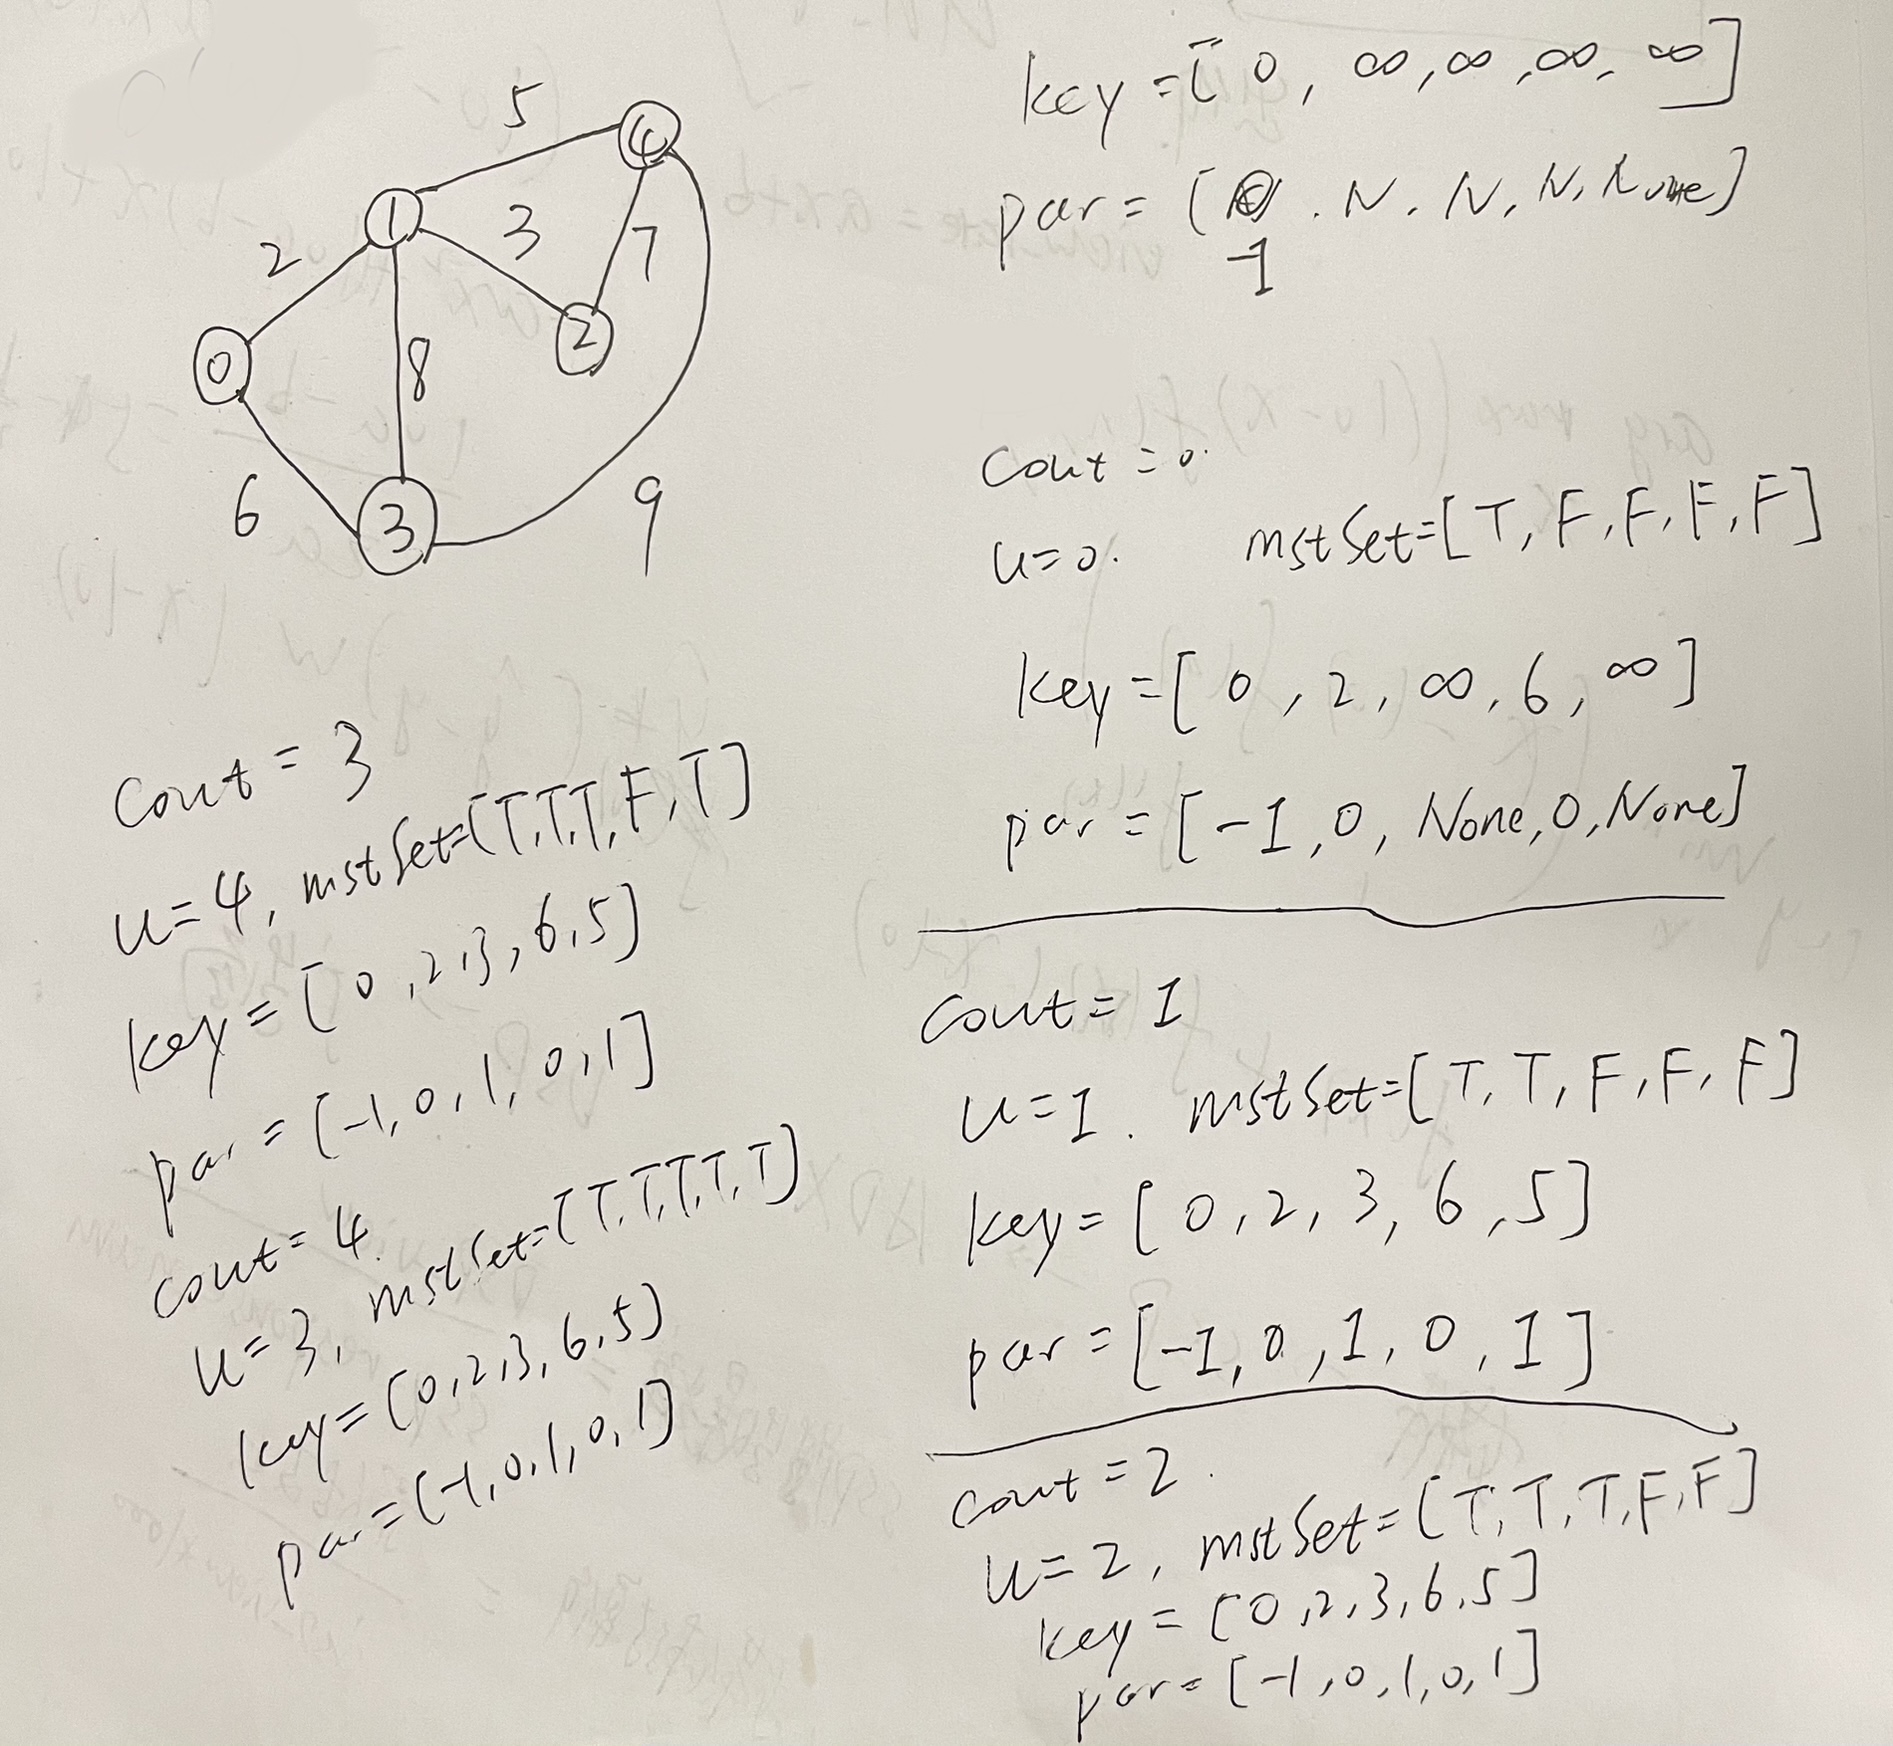 5
4
1
3
2
7
2
0
8
6
3
9
key = [ 0, ∞, ∞, ∞, ∞ ]
par = [ . N. N, N, None]
-1
cout = 0.
u=0. mstSet=[ T, F, F, F, F ]
key = [ 0, 2, ∞, 6, ∞ ]
par = [ -1, 0, None, 0, None]
cout = 1
u=1. mstSet=[ T, T, F, F, F ]
key= [ 0, 2, 3, 6, 5 ]
par = [-1, 0, 1, 0, 1 ]
cout = 2.
u=2, mstSet=[ T, T, T, F, F ]
key = [0, 2, 3, 6, 5]
par= [-1, 0, 1, 0, 1]
cout = 3
u=4, mstSet=[T,T,T,F,T]
key = [ 0, 2, 3, 6, 5]
par = [-1, 0, 1, 0, 1]
cout = 4.
u=3, mstSet=[T,T,T,T,T]
key=[0,2,3,6,5]
par=[-1,0,1,0,1]